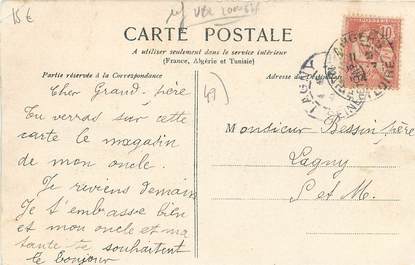 15€
CARTE POSTALE
A utiliser seulement dans le service intérieur
(France, Algérie et Tunisie)
Partie réservée à la Correspondance
Adresse du
Cher Grand-père
Tu verras sur cette
carte le magasin
de mon oncle.
Je reviens demain
Je t'embrasse bien
et mon oncle et ma
tante te souhaitent
le bonjour
49)
10
LAGNY
Monsieur Bessin père
Lagny
S et M.